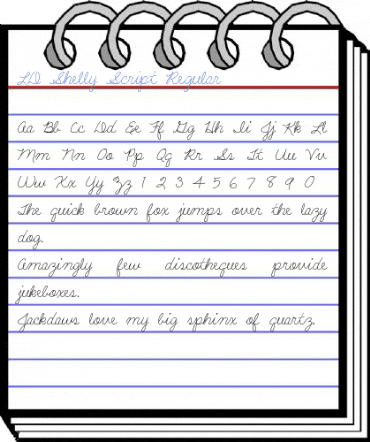 LD Shelly Script Regular
Aa Bb Cc Dd Ee Ff Gg Hh Ii Jj Kk Ll
Mm Nn Oo Pp Qq Rr Ss Tt Uu Vv
Ww Xx Yy Zz 1 2 3 4 5 6 7 8 9 0
The quick brown fox jumps over the lazy
dog.
Amazingly few discotheques provide
jukeboxes.
Jackdaws love my big sphinx of quartz.